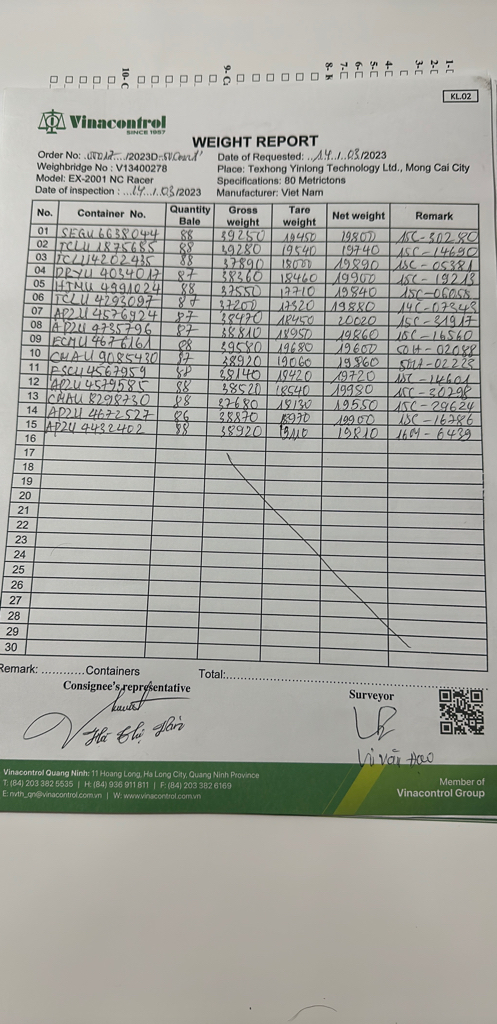 KL.02
Vinacontrol
SINCE 1957
WEIGHT REPORT
Order No: /2023D- Date of Requested: 14/03/2023
Weighbridge No : V13400278 Place: Texhong Yinlong Technology Ltd., Mong Cai City
Model: EX-2001 NC Racer Specifications: 80 Metrictons
Date of inspection : 14/03/2023 Manufacturer: Viet Nam
No. Container No. Quantity Bale Gross weight Tare weight Net weight Remark
01 SEGU 6638044 88 39250 19450 19800 15C-30280
02 TCLU 1875685 88 39280 19540 19740 15C-14690
03 TCLU4202435 88 37890 18000 19890 15C-05381
04 DRYU 4034017 87 38360 18460 19900 15C-19213
05 HTMU 4991024 88 37550 17710 19840 15C-06058
06 TCLU 4293097 87 37200 17320 19880 14C-07343
07 APZU 4576924 87 38470 18450 20020 15C-31917
08 APZU 4735796 87 38810 18950 19860 15C-16560
09 ECMU 4676161 88 39580 19680 19600 50H-02088
10 CMAU 9085430 87 38920 19060 19860 50H-02228
11 FSCU 4567959 88 38140 18420 19720 15C-14601
12 APZU 4579585 88 38520 18540 19980 15C-30298
13 CMAU 8298730 88 37680 18130 19550 15C-29624
14 APZU 4672527 86 38870 18970 19900 15C-16786
15 APZU 4432402 88 38920 19110 19810 16M-6439
16
17
18
19
20
21
22
23
24
25
26
27
28
29
30
Remark: ............Containers Total:
Consignee's representative Surveyor
Vi Văn Hao
Vinacontrol Quang Ninh: 11 Hoang Long, Ha Long City, Quang Ninh Province
T: (84) 203 382 5535 | H: (84) 936 911 811 | F: (84) 203 382 6169
E: nvth_qn@vinacontrol.com.vn | W: www.vinacontrol.com.vn
Member of
Vinacontrol Group